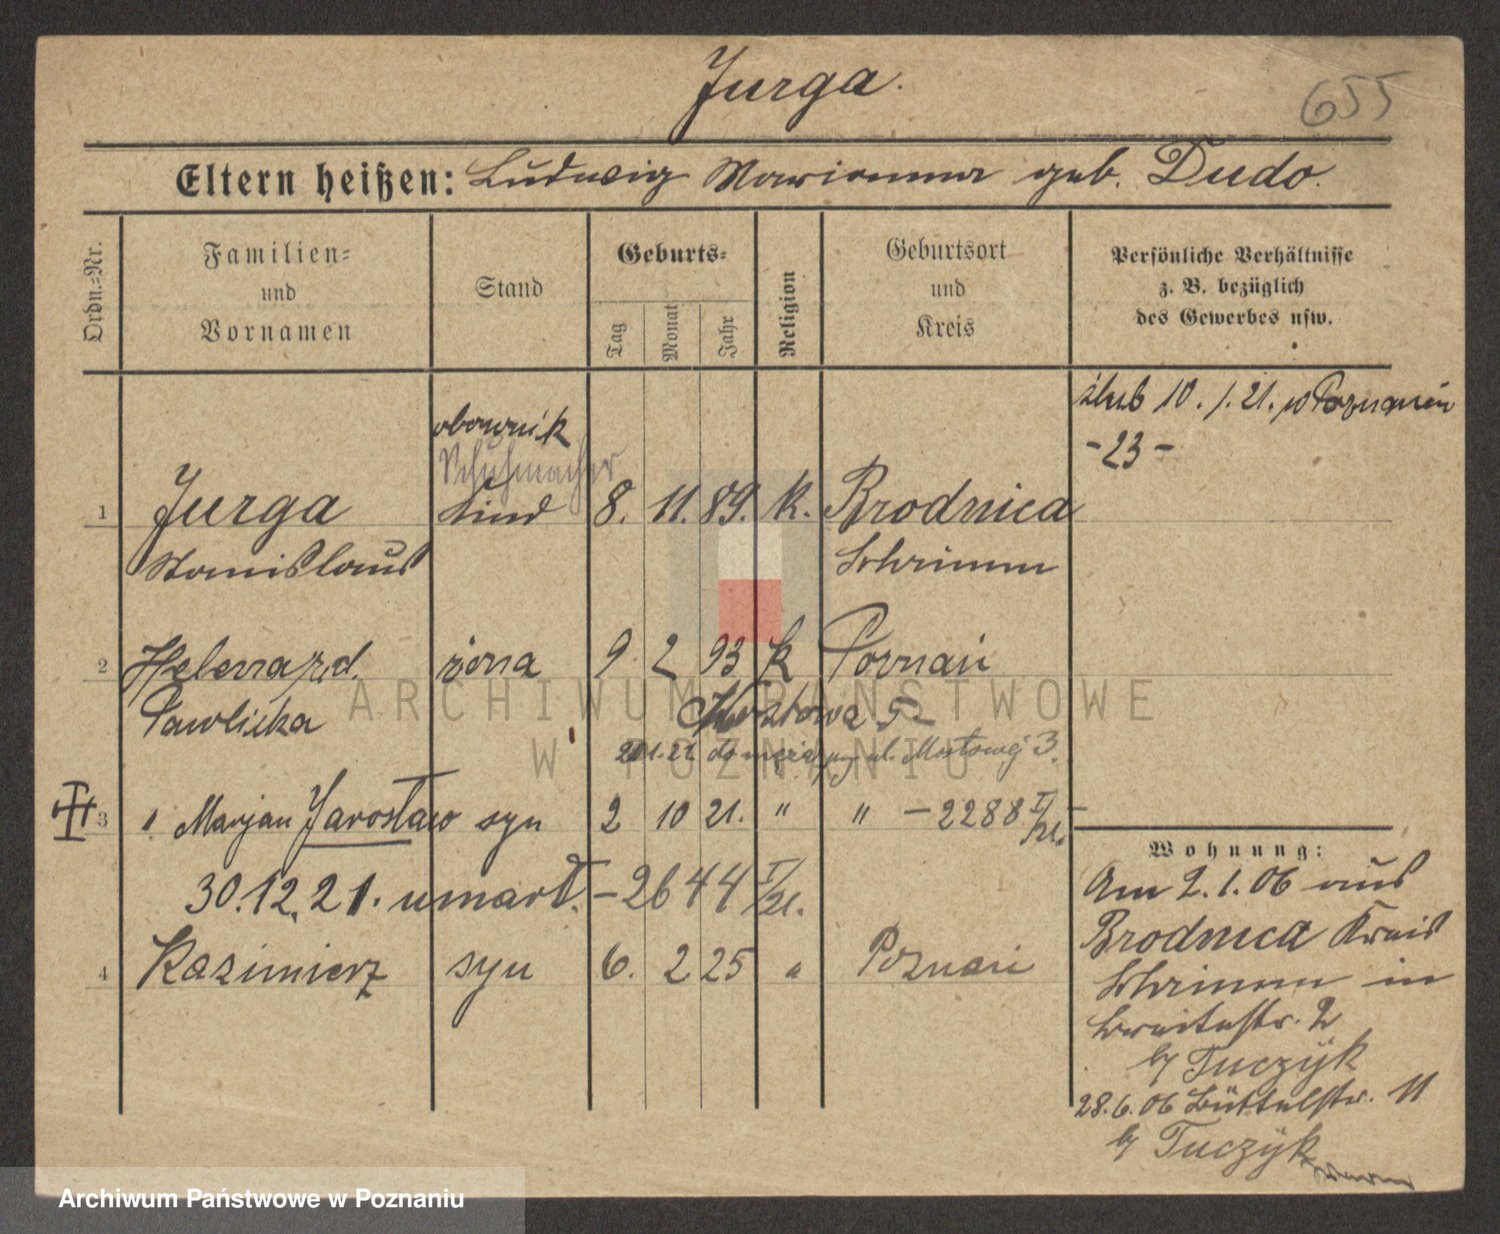 Jurga.
655
Eltern heißen: Ludwig Marianna geb. Dudo.
Ordn.=Nr.
Familien=
und
Vornamen
Stand
Geburts=
Tag
Monat
Jahr
Religion
Geburtsort
und
Kreis
Persönliche Verhältnisse
z. B. bezüglich
des Gewerbes usw.
ślub 10. 1. 21. w Poznaniu
-23-
Schuhmacher
1 Jurga Kind 8. 11. 89. k. Brodnica
Stanislaus Schrimm
2 Helena z d. żona 9 2 93 k Poznań
Pawlicka
do męża ul. Mostowej 3.
3 Marjan Jarosław syn 2 10 21. " " -2288 I/21.-
30.12.21. umarł. -2644 I/21.
4 Kazimierz syn 6. 2 25 " Poznań
Wohnung:
Am 2.1.06 aus
Brodnica Kreis
Schrimm in
Breitestr. 2
by Tuczyk
28.6.06 Büttelstr. 11
by Tuczyk
ARCHIWUM PAŃSTWOWE
W POZNANIU
Archiwum Państwowe w Poznaniu